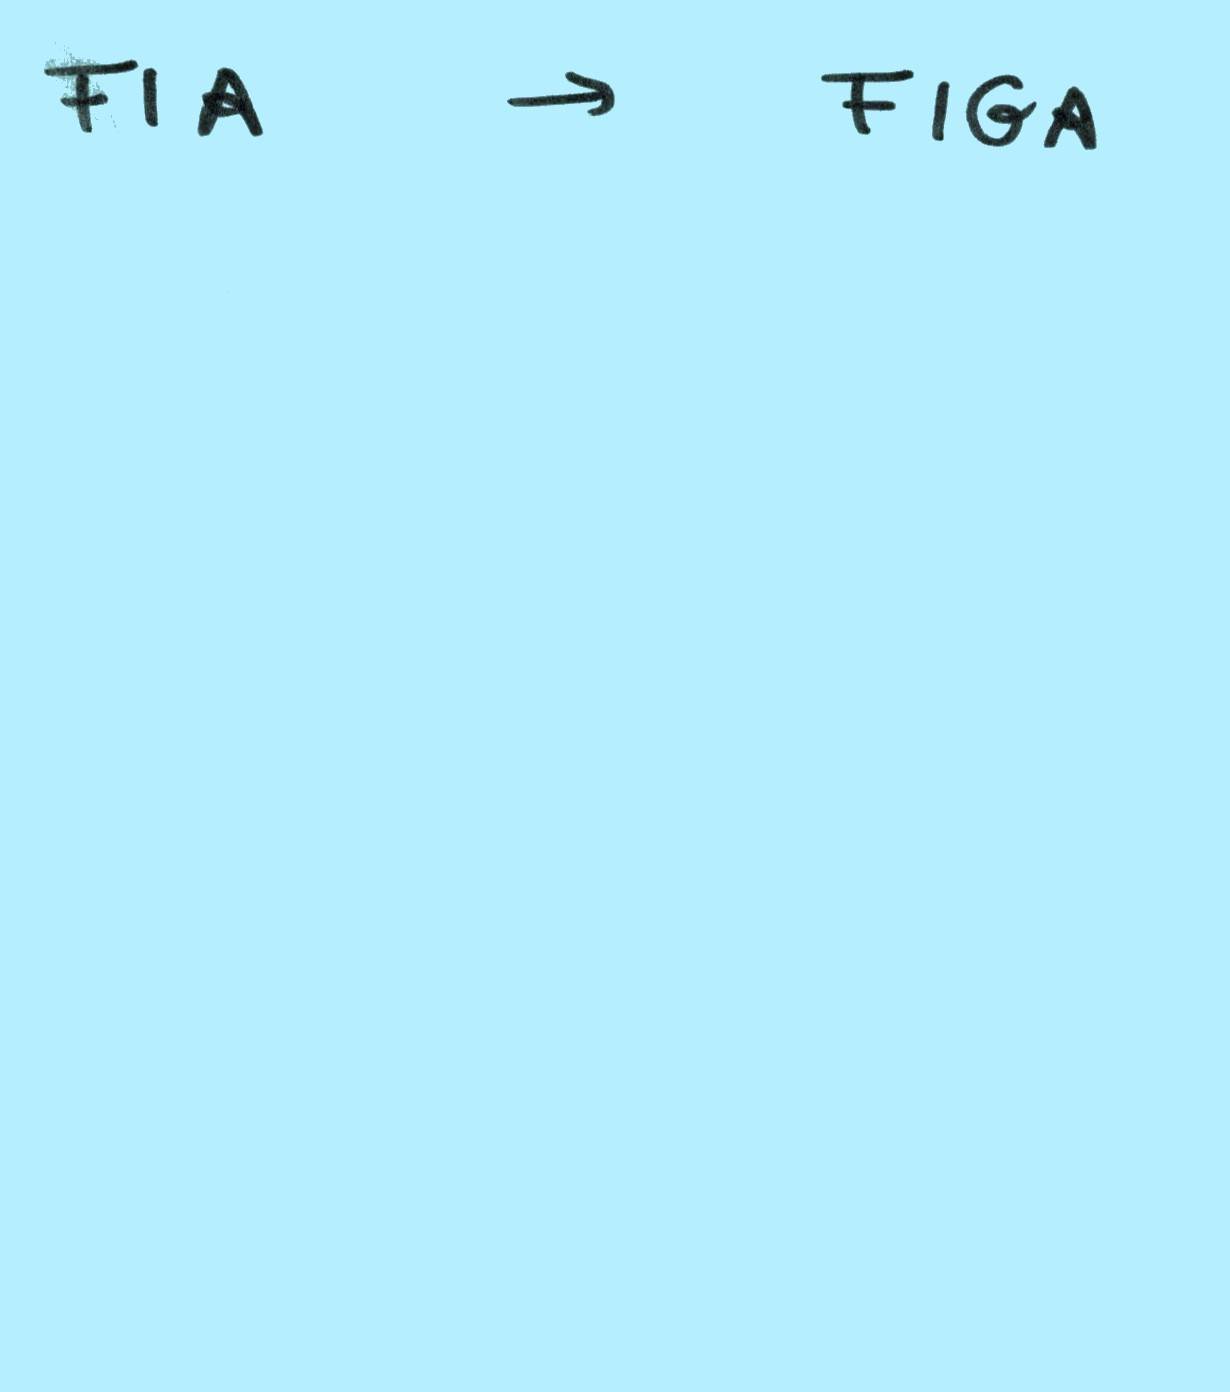 FIA → FIGA